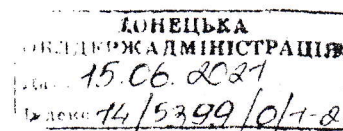 ДОНЕЦЬКА
ОБЛДЕРЖАДМІНІСТРАЦІЯ
15.06.2021
Індекс 14/5399/0/1-2